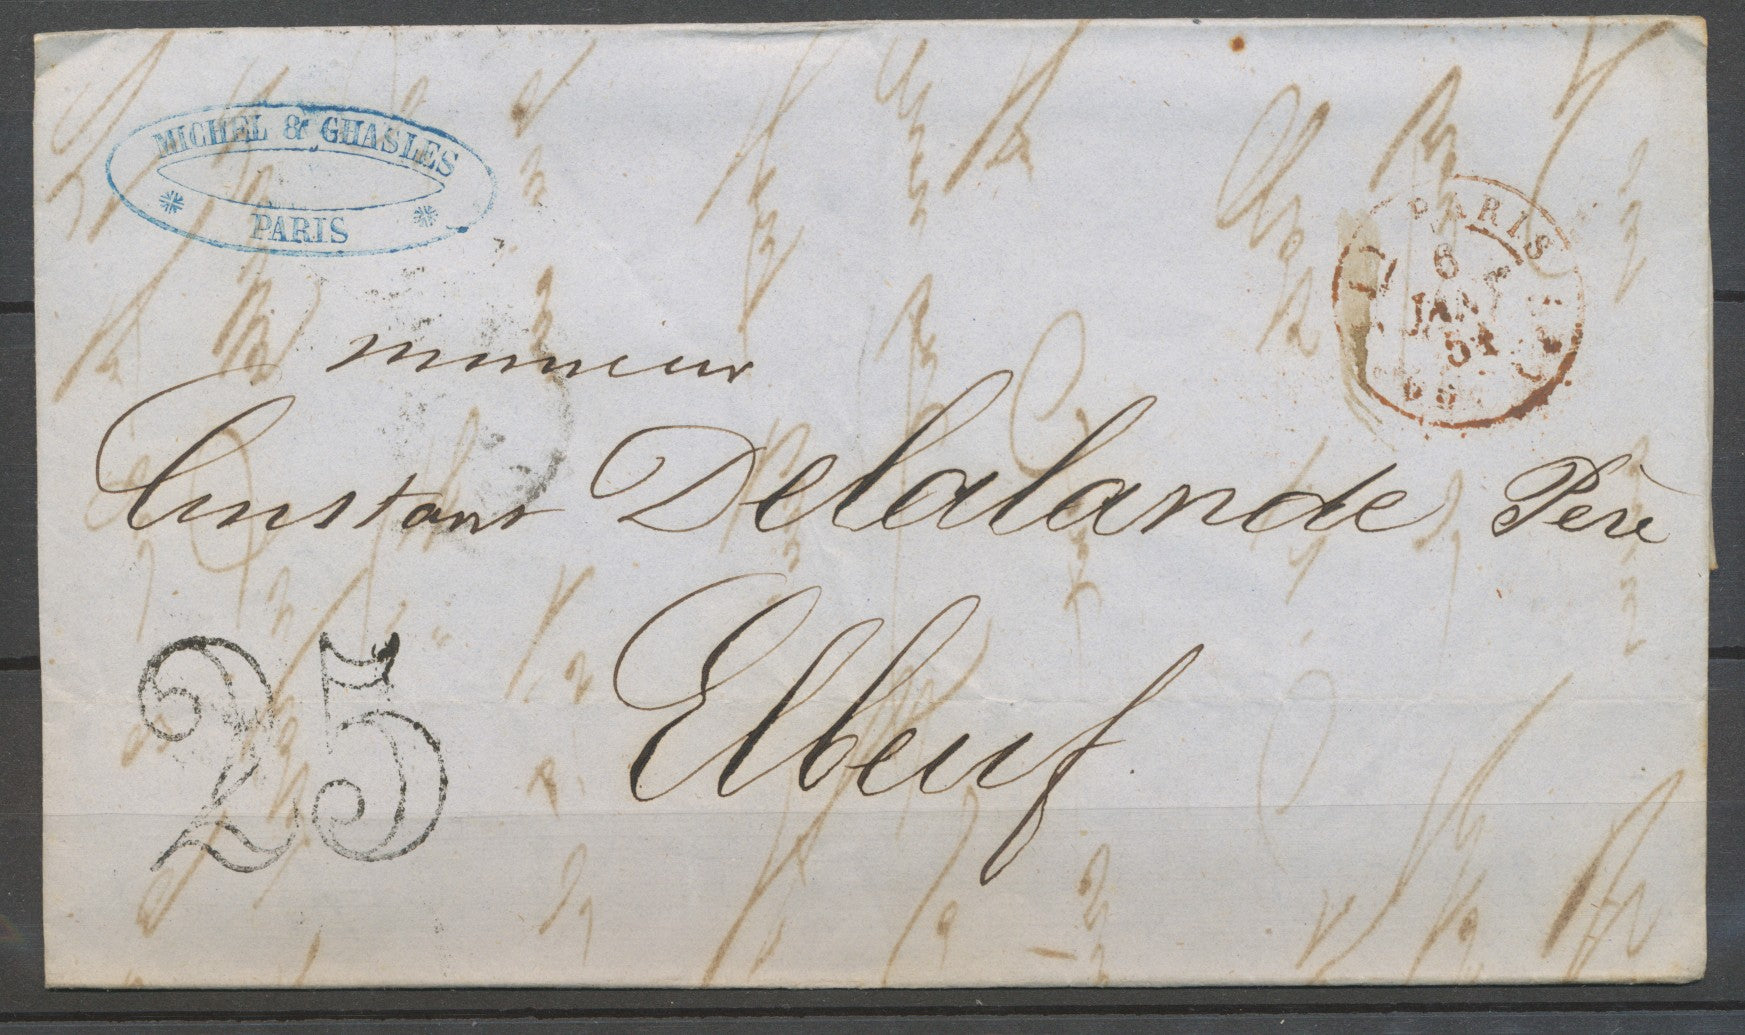 MICHEL & CHASLES
PARIS
PARIS
6
JANV
51
monsieur
Constant Delalande Père
Elbeuf
25